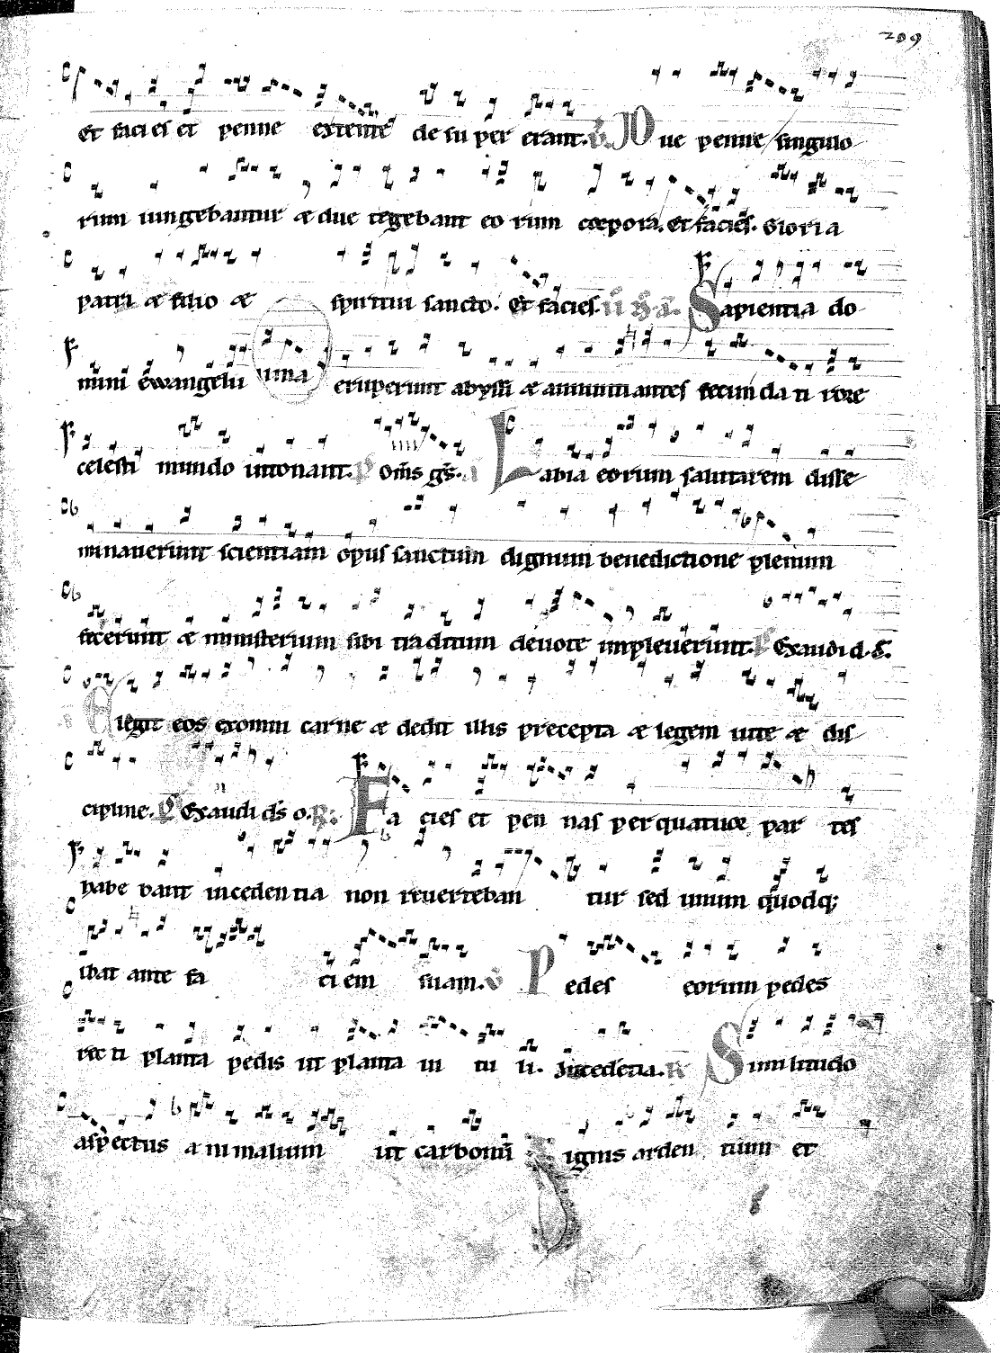 209
Et facies et penne extente de su per erant. v̄. Due penne singulo
rum iungebantur et due tegebant eo rum corpora. Et facies. Gloria
patri et filio et spiritui sancto. Et facies. Sapientia do
mini ewangelii una eruperunt abyssi et annuntiantes fecunda ti rore
celesti mundo intonant. P om̄s gs̄. Labia eorum salutarem disse
minaverunt scientiam opus sanctum dignum benedictione plenum
fecerunt et ministerium sibi traditum devote impleverunt. P Exaudi d. c̄.
Elegit eos ex omni carne et dedit illis precepta et legem vite et dis
cipline. P Exaudi ds̄ o. R. Fa cies et pen nas per quatuor par tes
habe bant incedentia non revertebantur sed unum quodq;
ibat ante fa ciem suam. v̄ Pedes eorum pedes
rec ti planta pedis ut planta vi tu li. Incedētia. R Similitudo
aspectus a ni malium ut carbonū ignis arden tium et